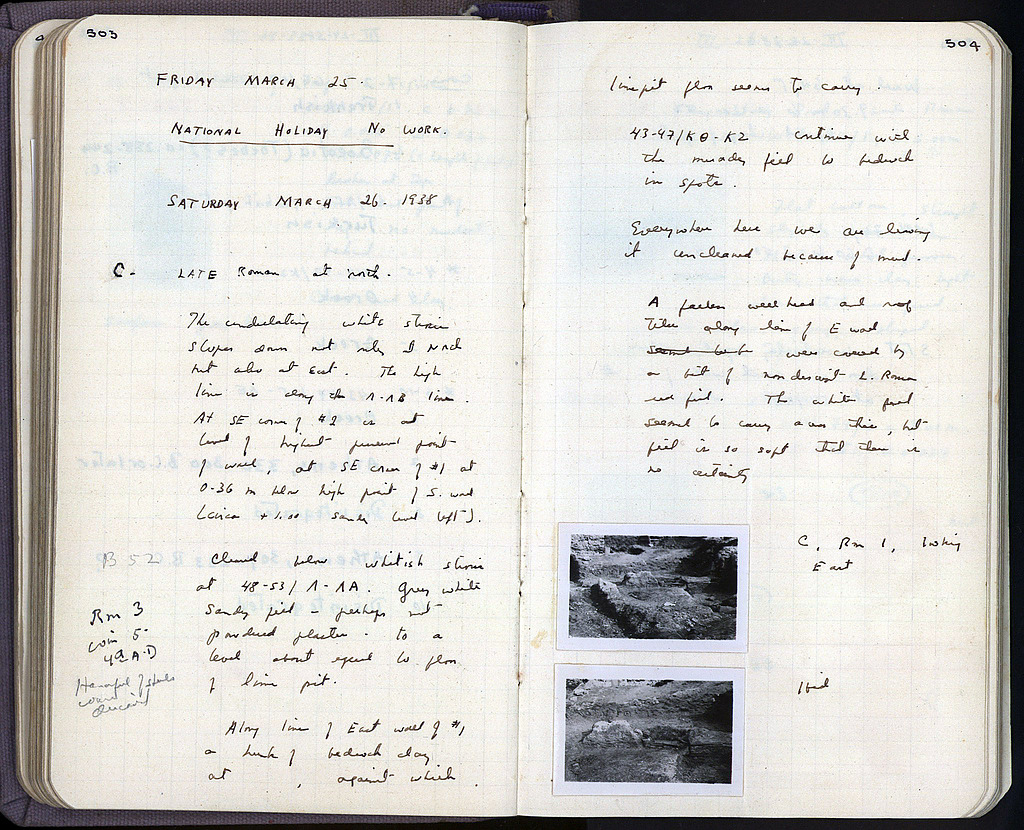 503
FRIDAY MARCH 25.
NATIONAL HOLIDAY No WORK.
SATURDAY MARCH 26. 1938
C - LATE Roman at north.
The undulating white stosis
slopes down not only at North
but also at East. The high
line is along the Λ-ΛB line.
At SE corner of #2 is at
level of highest present point
of wall, at SE corner of #1 at
0.36 m below high point of S. wall
(circa +1.00 sandy level left).
B 52 Cleared below whitish stosis
at 48-53/Λ-ΛA. Grey white
Rm 3 sandy fill - perhaps not
coin 5- powdered plaster - to a
4th A-D level about equal to floor
Handful of sherds of lime pit.
Along line of East wall of #1,
a hunk of bedrock clay
at , against which
504
lime pit floor seems to carry.
43-47/ΚΘ-Κ2 continue with
the muddy fill to bedrock
in spots.
Everywhere here we are leaving
it uncleaned because of mud.
A fallen well head and roof
tiles along line of E wall
were covered by
a bit of nondescript L. Roman
red fill. The white fill
seemed to carry across this but
fill is so soft that there is
no certainty
C, Rm 1, looking
East
Ibid